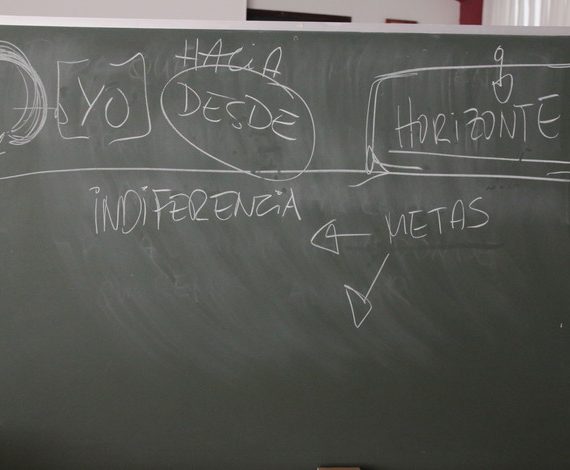 HACIA
[YO] DESDE HORIZONTE
INDIFERENCIA
METAS